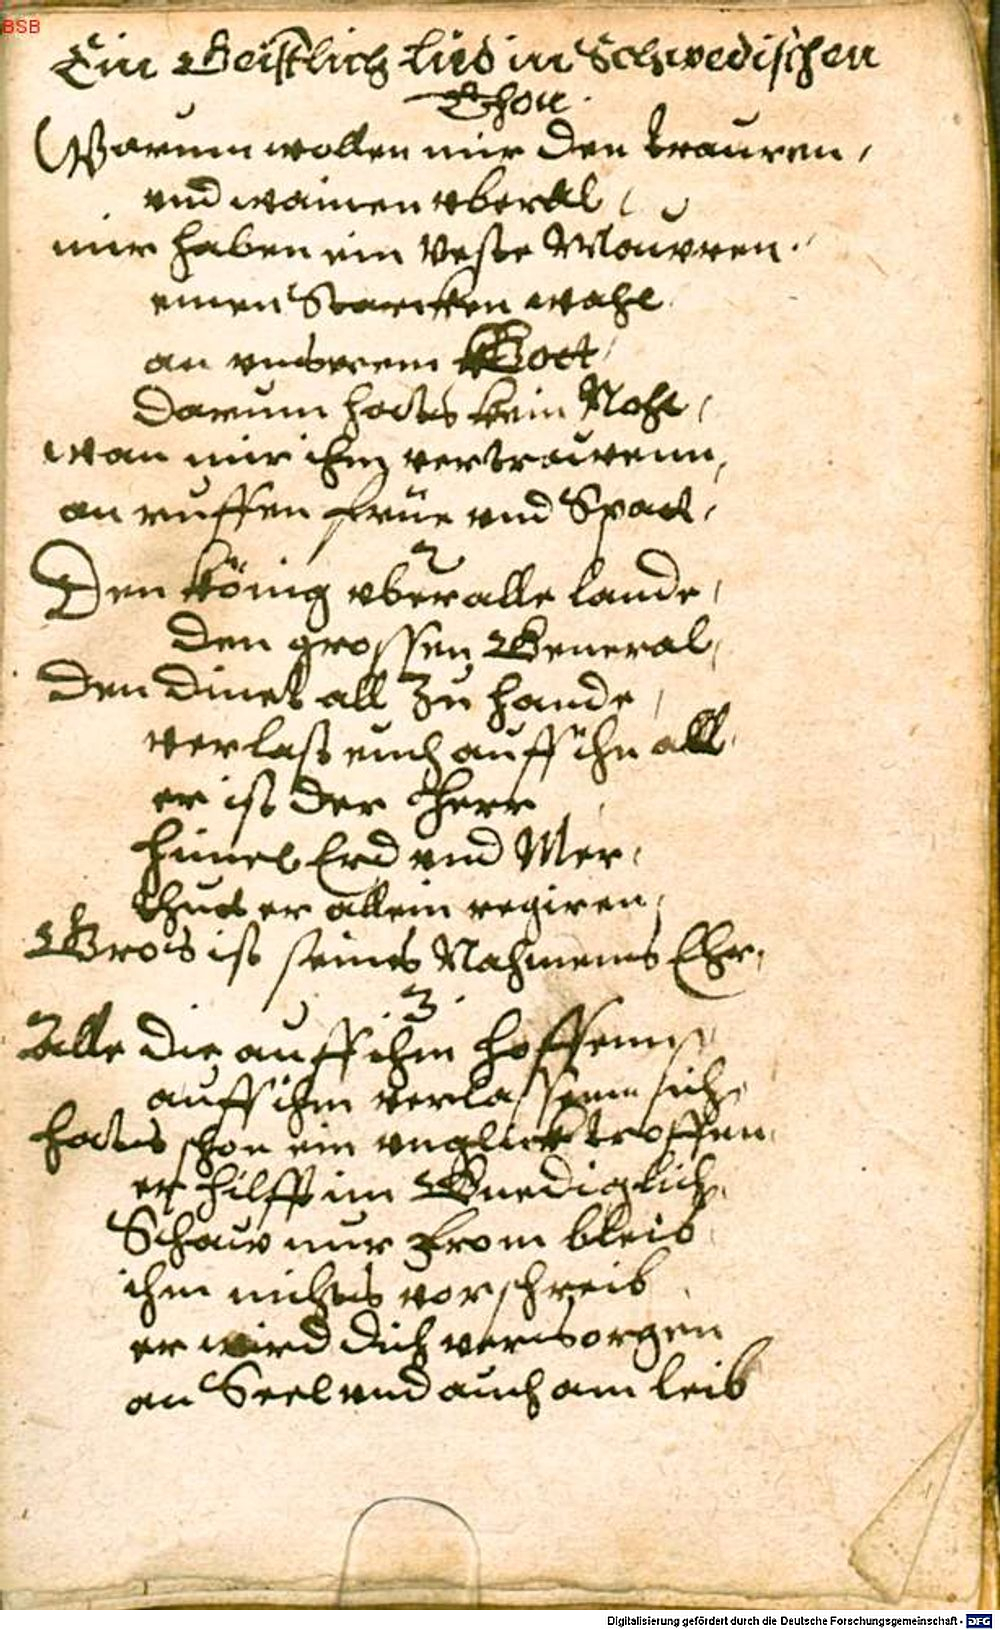 BSB
Ein Geistlich lied in Schwedischen
Thon.
Warum wollen mir den trauren,
vnd wainen vberal,
mir haben ein Veste Mauvren.
einen Starcken wahl
an vnserem Gott,
Darum hats kein Noht,
wan mir ihm vertrauwenn,
an ruffen früe vnd Spat,
2
Den König vber alle lande,
den grossen General,
den dinet all zu hande,
verlast euch auff ihn all
er ist der Herr
himel Erd vnd Mer,
thuet er allein regiren,
Gros ist seines Nahmens Ehr,
.3.
Alle die auff ihm hoffenn,
auff ihm verlassenn sich,
hats schon ein vnglick troffen,
er hilfft im Gnediglich,
Schauw nur from bleib
ihm nichts vorschreib
er wird dich versorgen
an Seel vnd auch am leib
Digitalisierung gefördert durch die Deutsche Forschungsgemeinschaft - DFG